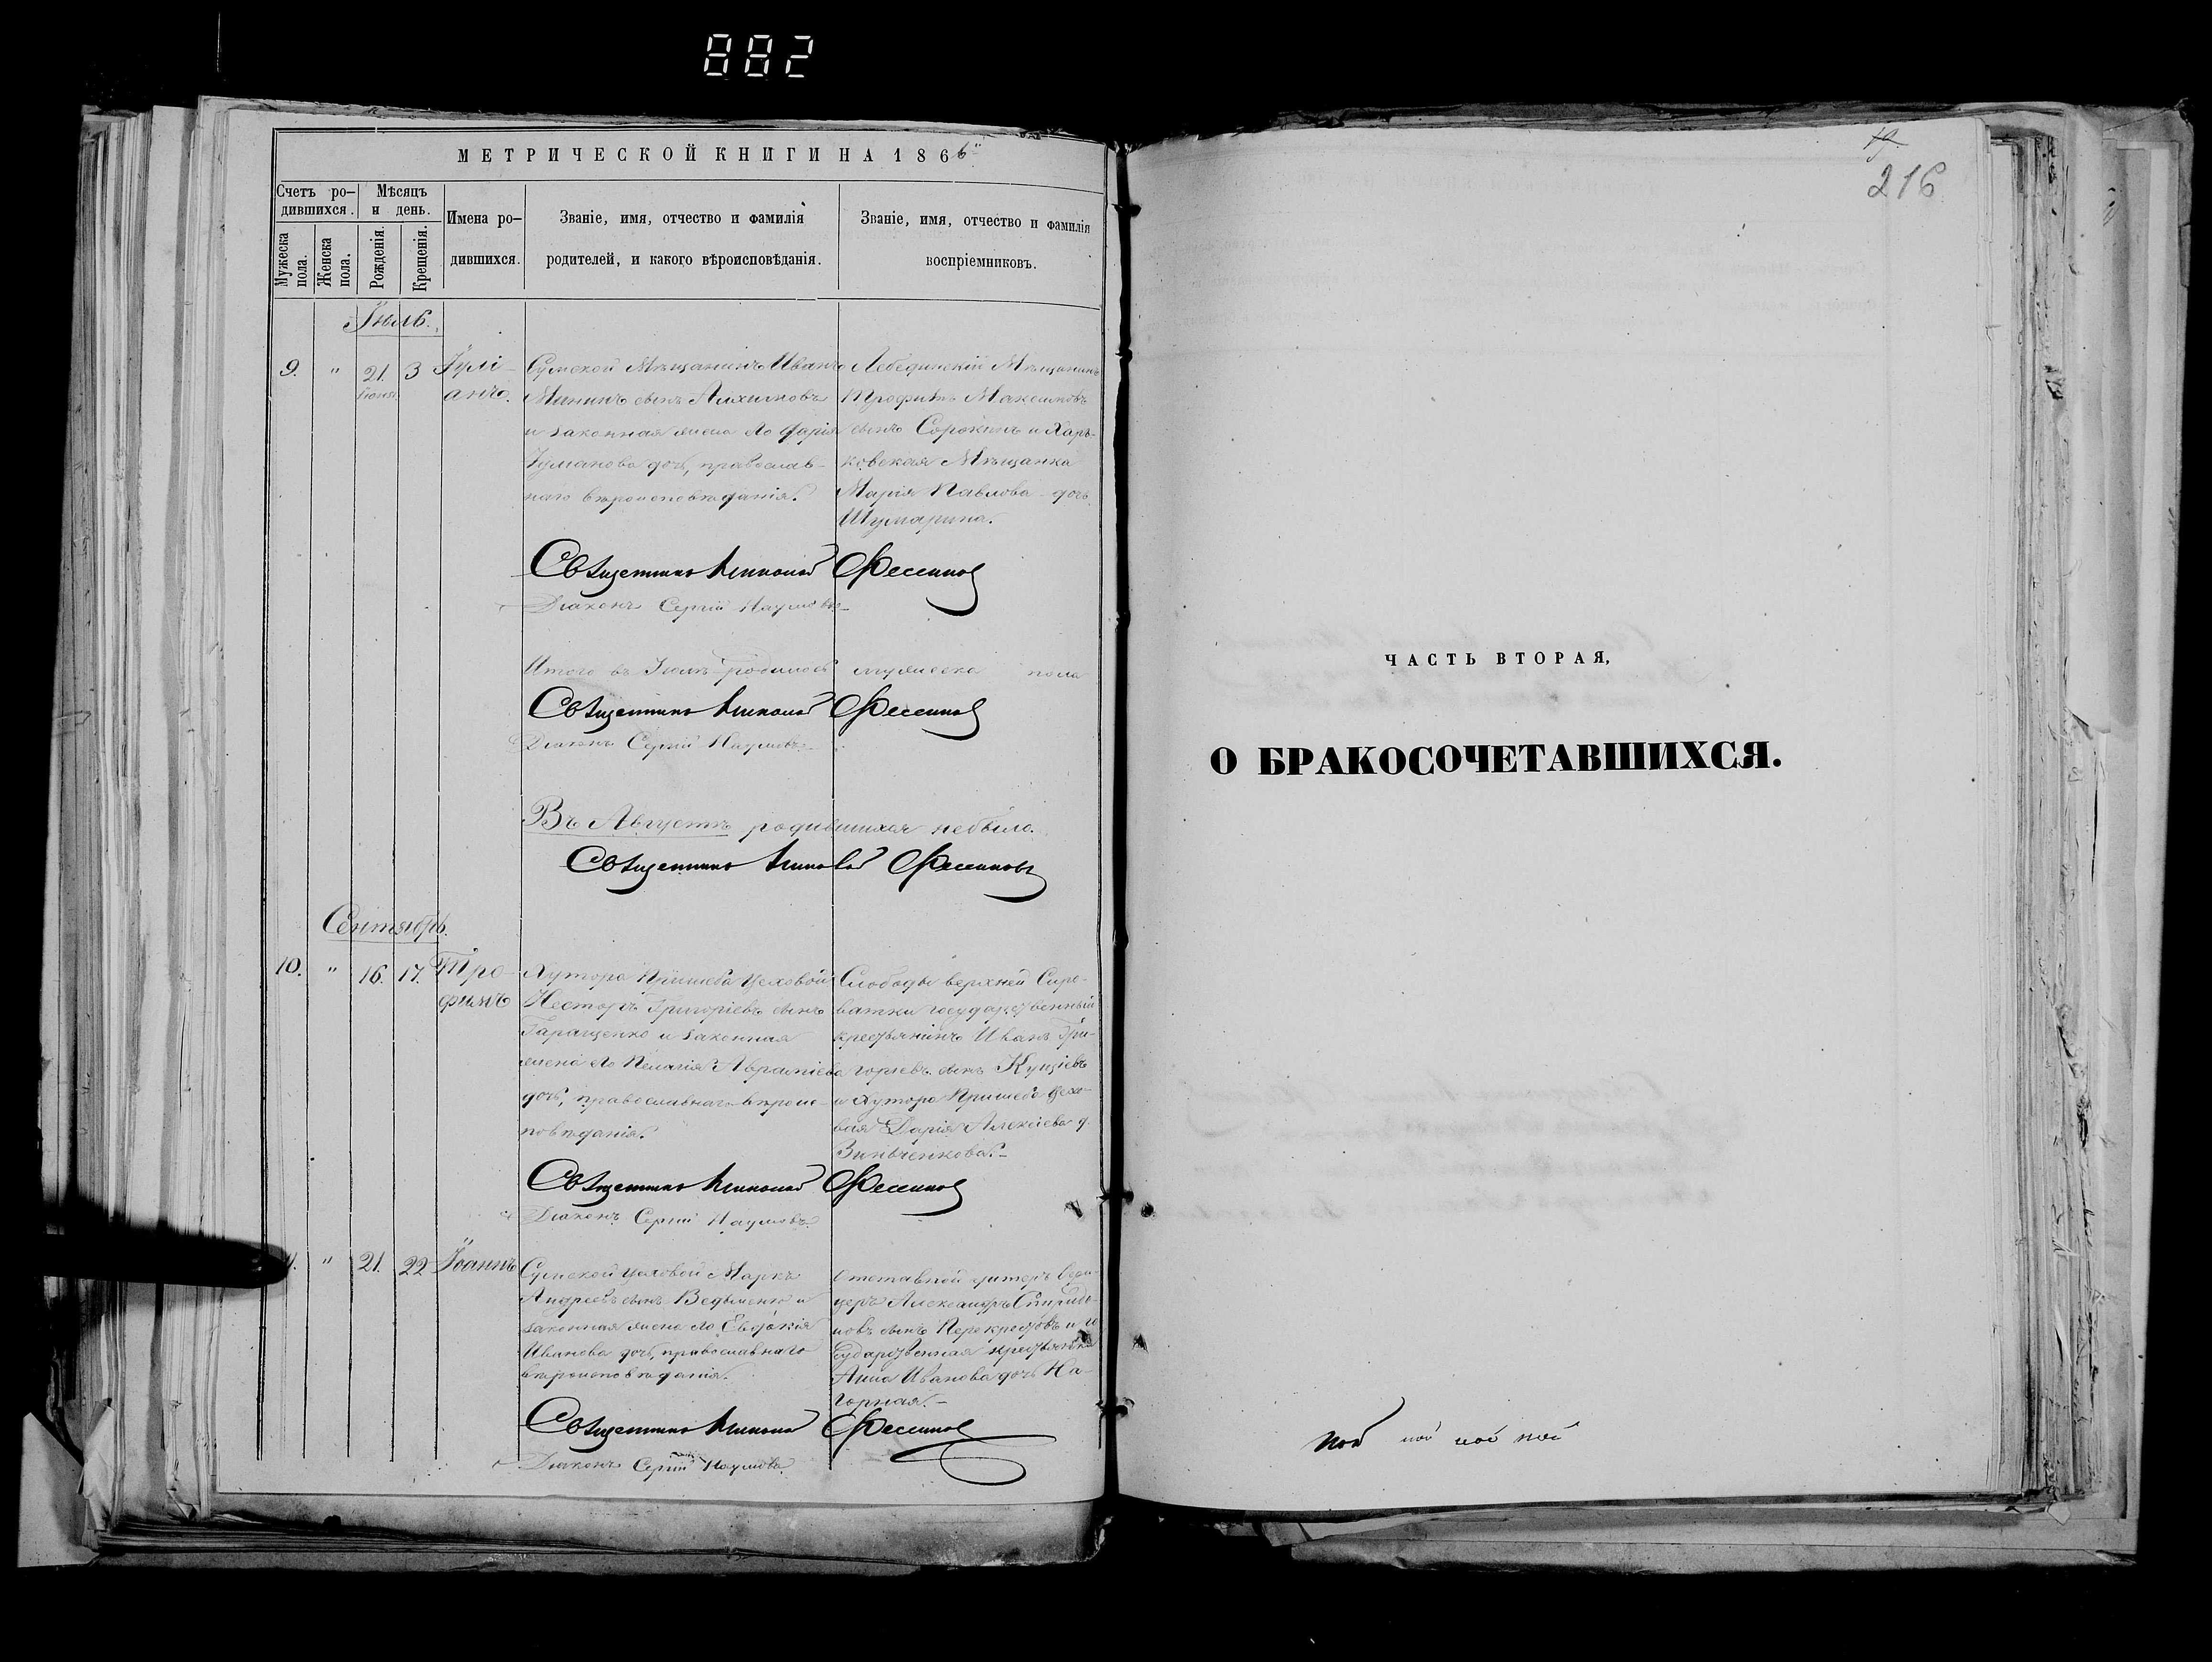 882
МЕТРИЧЕСКОЙ КНИГИ НА 1866
Счетъ ро-
дившихся.
Мѣсяцъ
и день.
Мужеска пола.
Женска пола.
Рожденія.
Крещенія.
Имена ро-
дившихся.
Званіе, имя, отчество и фамилія
родителей, и какого вѣроисповѣданія.
Званіе, имя, отчество и фамилія
воспріемниковъ.
Іюль.
9. " 21. 3 Іулі-
Іюня.
анъ.
Сумской Мѣщанинъ Иванъ
Мининъ сынъ
и законная жена его Дарія
дочь, православ-
наго вѣроисповѣданія.
Лебединскій Мѣщанинъ
Трофимъ Максимовъ
сынъ Сорокинъ и Харь-
ковская Мѣщанка
Марія Павлова дочь
Шумарина.
Священникъ Николай Фесенковъ
Діаконъ Сергій Наумовъ
Итого въ Іюлѣ родилось мужеска пола
Священникъ Николай Фесенковъ
Діаконъ Сергій Наумовъ
Въ Августѣ родившихся небыло.
Священникъ Николай Фесенковъ
Сентябрь.
10. " 16. 17. Тро-
фимъ
Хутора Пришиба Цеховой
Несторъ Григоріевъ сынъ
Таращенко и законная
жена его Пелагія
дочь, православнаго вѣроис-
повѣданія.
Слободы верхней Сыро-
ватки государственный
крестьянинъ Иванъ Гри-
горьевъ сынъ
и Хутора Пришиба Цехо-
вая Дарія Алексіева д.
Зинченкова.
Священникъ Николай Фесенковъ
Діаконъ Сергій Наумовъ
11. " 21. 22 Іоаннъ
Сумской цеховой Маркъ
Андреевъ сынъ Ведьменко и
законная жена его Евдокія
Иванова дочь, православнаго
вѣроисповѣданія.
Отставной унтеръ Офи-
церъ Александръ Спиридо-
новъ сынъ Перекрестовъ и го
сударственная крестьянка
Анна Иванова дочь На-
горная.
Священникъ Николай Фесенковъ
Діаконъ Сергій Наумовъ
19
216
ЧАСТЬ ВТОРАЯ,
О БРАКОСОЧЕТАВШИХСЯ.